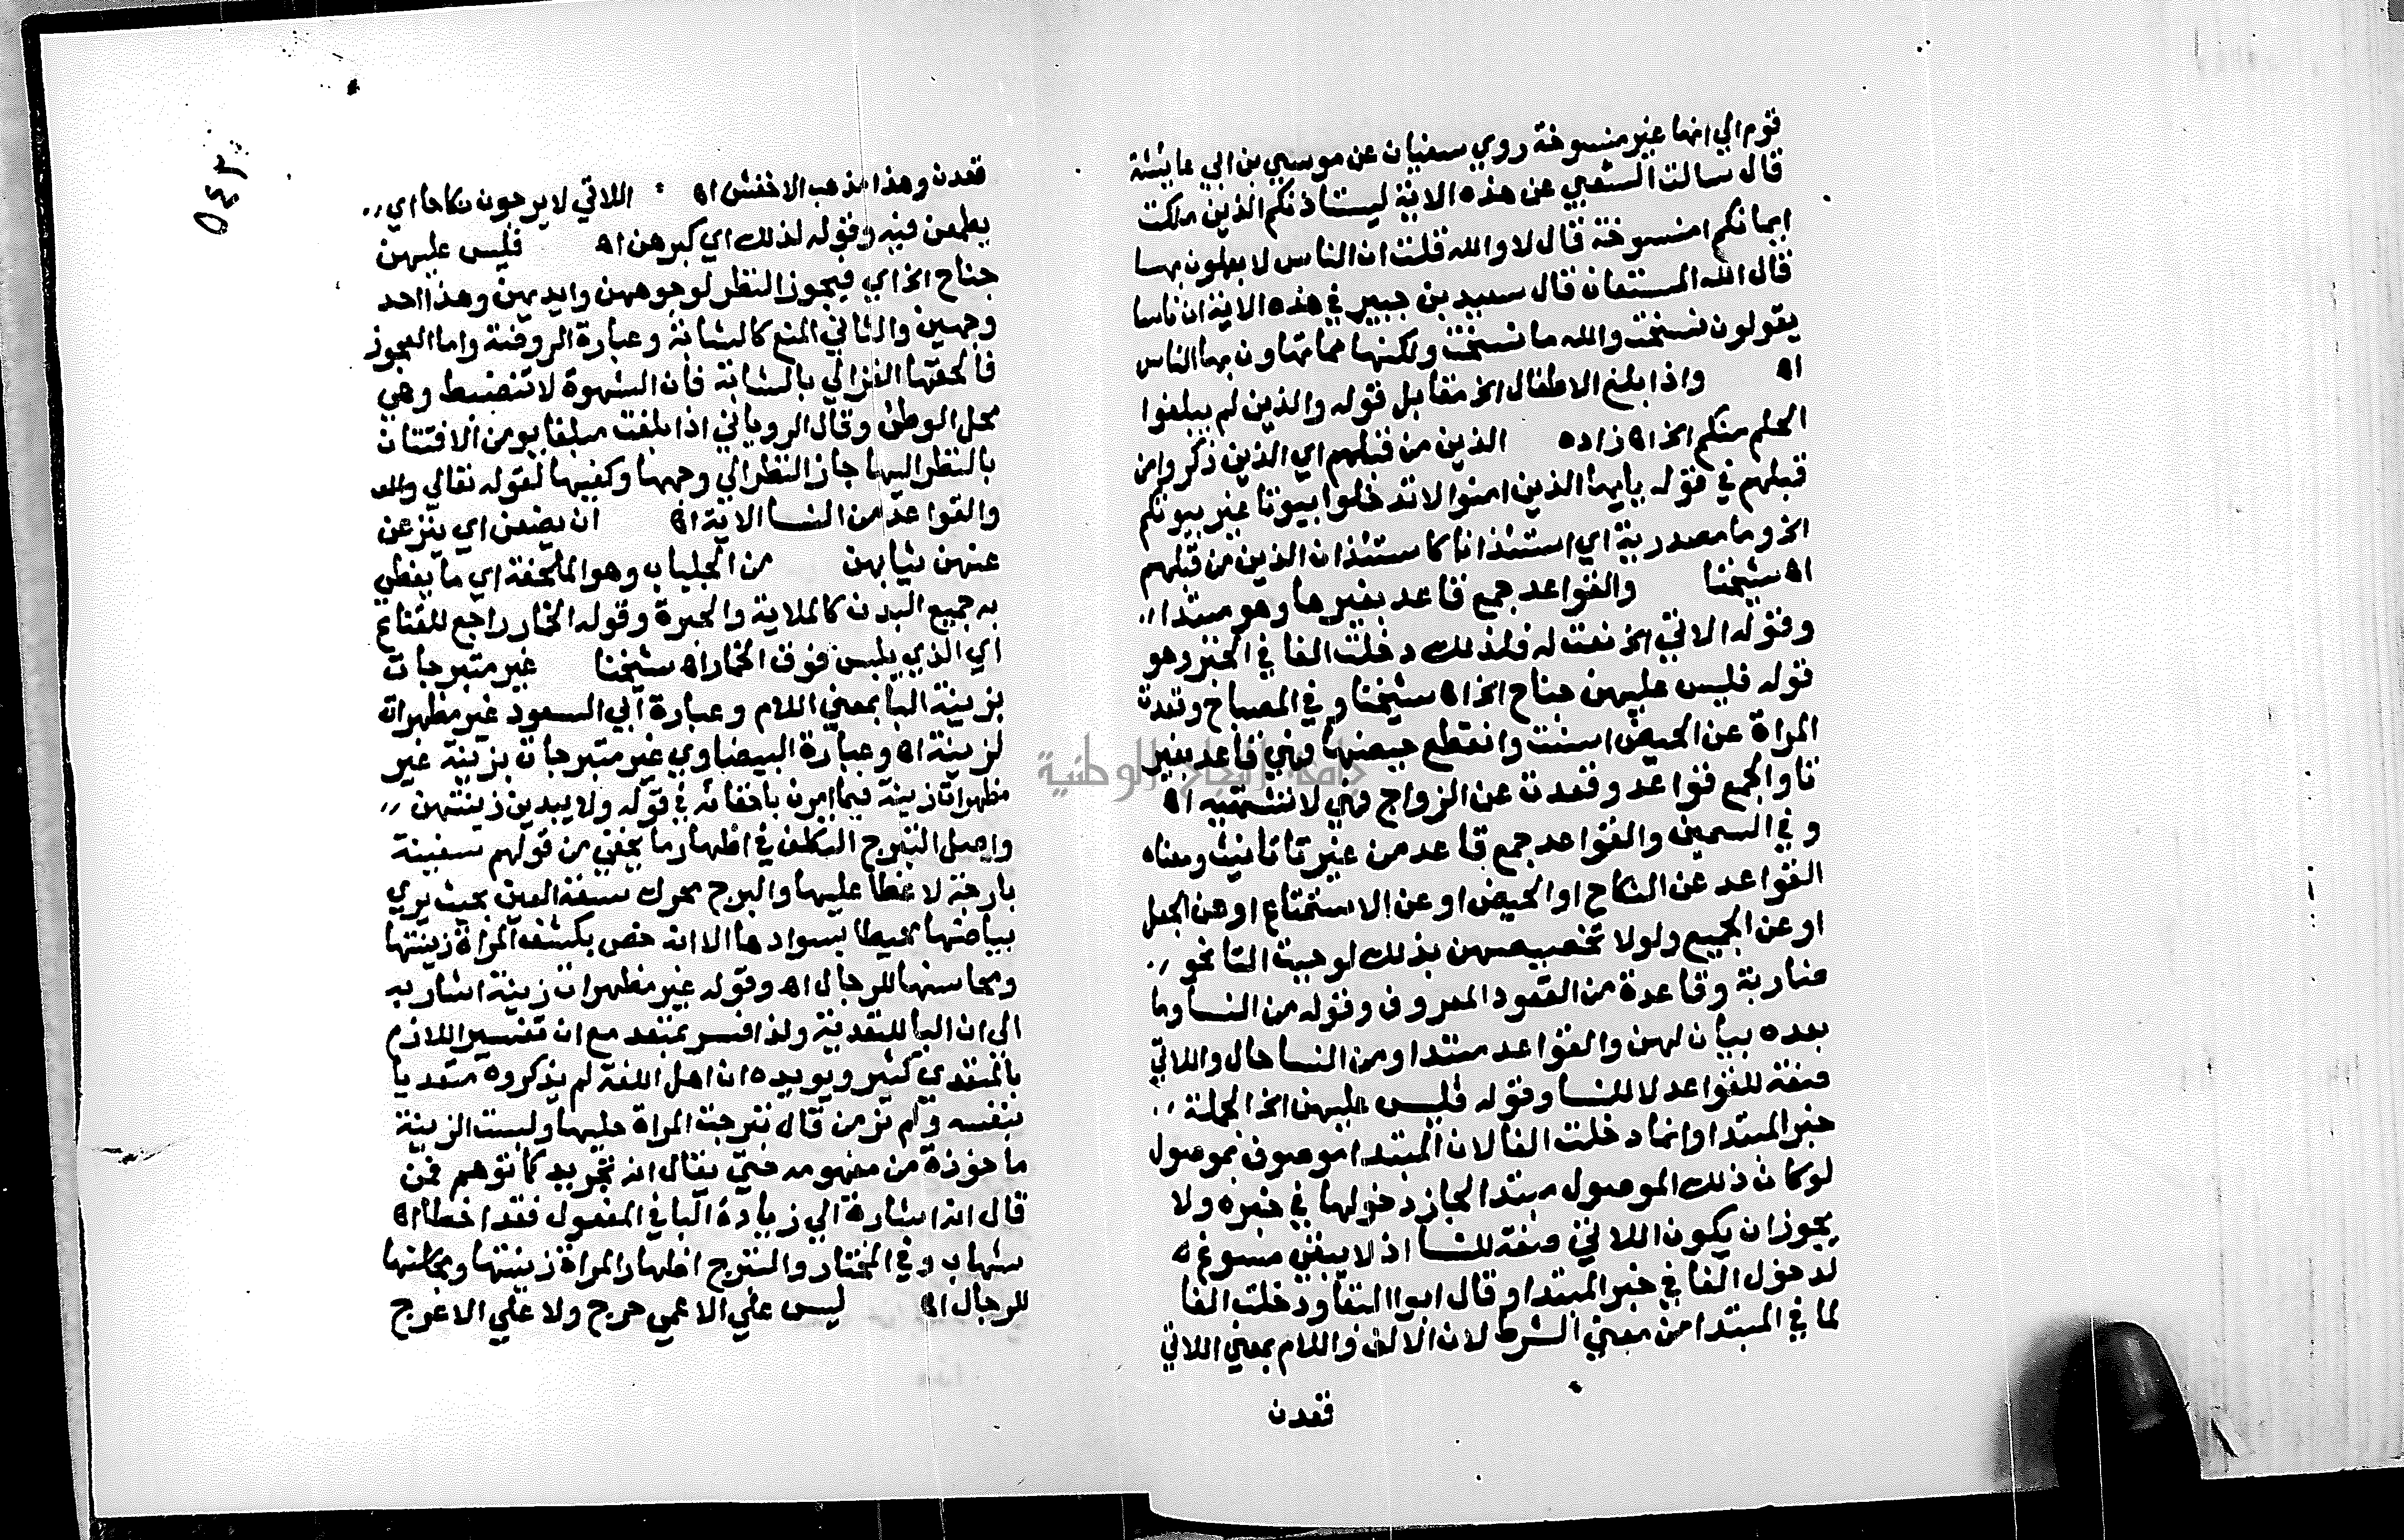 قوم الي انها غير منسوخة روي سفيان عن موسي بن ابي عايشة
قال سالت الشعبي عن هذه الاية ليستاذنكم الذين ملكت
ايمانكم امنسوخة قال لا والله قلت ان الناس لا يعلون بها
قال الله المستعان قال سعيد بن جبير في هذه الاية ان ناسا
يقولون نسخت والله ما نسخت ولكنها مما تهاون بها الناس
اه واذا بلغ الاطفال الخ مقابل قوله والذين لم يبلغوا
الحلم منكم الخ اه زاده الذين من قبلهم اي الذين ذكروا من
قبلهم في قوله يايها الذين امنوا لا تدخلوا بيوتا غير بيوتكم
الخ وما مصدرية اي استئذانا كاستئذان الذين من قبلهم
اه شيخنا والقواعد جمع قاعد بغير ها وهو مبتدا
وقوله الاتي الخ نعت له فلذلك دخلت الفا في الخبر وهو
قوله فليس عليهن جناح الخ اه شيخنا وفي المصباح وقعدت
المراة عن الحيض اسنت وانقطع حيضها فهي قاعد بغير
تا والجمع قواعد وقعدت عن الزواج فهي لا تشتهيه اه
وفي السمين والقواعد جمع قاعد من غير تا تانيث ومعناه
القواعد عن النكاح او الحيض او عن الاستمتاع او عن الحبل
او عن الجميع ولولا تخصيصهن بذلك لوجبت التا نحو
ضاربة وقاعدة من القعود المعروف وقوله من النسا وما
بعده بيان لهن والقواعد مبتدا ومن النسا حال واللاتي
صفة للقواعد لا للنسا وقوله فليس عليهن الخ الجملة
خبر المبتدا وانما دخلت الفا لان المبتدا موصوف بموصول
لو كان ذلك الموصول مبتدا لجاز دخولها في خبره ولا
يجوز ان يكون اللاتي صفة للنسا اذ لا يبقي مسوغ
لدخول الفا في خبر المبتدا وقال ابوا البقا ودخلت الفا
لما في المبتدا من معني الشرط لان الالف واللام بمعني اللاتي
قعدن
٥٤٢
قعدن وهذا مذهب الاخفش اه اللاتي لا يرجون نكاحا اي
يطمعن فيه وقوله لذلك اي كبرهن اه فليس عليهن
جناح الخ اي فيجوز النظر لوجوههن وايديهن وهذا احد
وجهين والثاني المنع كالشابة وعبارة الروضة واما العجوز
فالحقها الغزالي بالشابة فان الشهوة لا تنضبط وهي
محل الوطئ وقال الروياني اذا بلغت مبلغا يومن الافتتان
بالنظر اليها جاز النظر الي وجهها وكفيها لقوله تعالي والله
والقواعد من النسا الاية اه ان يضعن اي ينزعن
عنهن ثيابهن من الجلباب وهو الملحفة اي ما يغطي
به جميع البدن كالملاية والحبرة وقوله الخمار راجع للقناع
اي الذي يلبس فوق الخمار اه شيخنا غير متبرجات
بزينة البا بمعني اللام وعبارة ابي السعود غير مظهرات
لزينة اه وعبارة البيضاوي غير متبرجات بزينة غير
مظهرات زينة فيما امرن باخفائه في قوله ولا يبدين زينتهن
واصل التبرج التكلف في اظهار ما يخفي من قولهم سفينة
بارجة لا غطا عليها والبرج محرك سعة العين بحيث يري
بياضها محيطا بسوادها الا انه خص بكشف المراة زينتها
ومحاسنها للرجال اه وقوله غير مظهرات زينة اشار به
الي ان البا للتعدية ولذا فسر بمتعد مع ان تفسير اللازم
بالمتعدي كثير ويويده ان اهل اللغة لم يذكروه متعديا
بنفسه ولم نر من قال تبرجت المراة حليها وليست الزينة
ماخوذة من مفهومه حتي يقال انه تجريد كما توهم فمن
قال انه اشارة الي زيادة البا في المفعول فقد اخطا اه
شهاب وفي المختار والتبرج اظهار المراة زينتها ومحاسنها
للرجال اه ليس علي الاعمي حرج ولا علي الاعرج
جامعة النجاح الوطنية